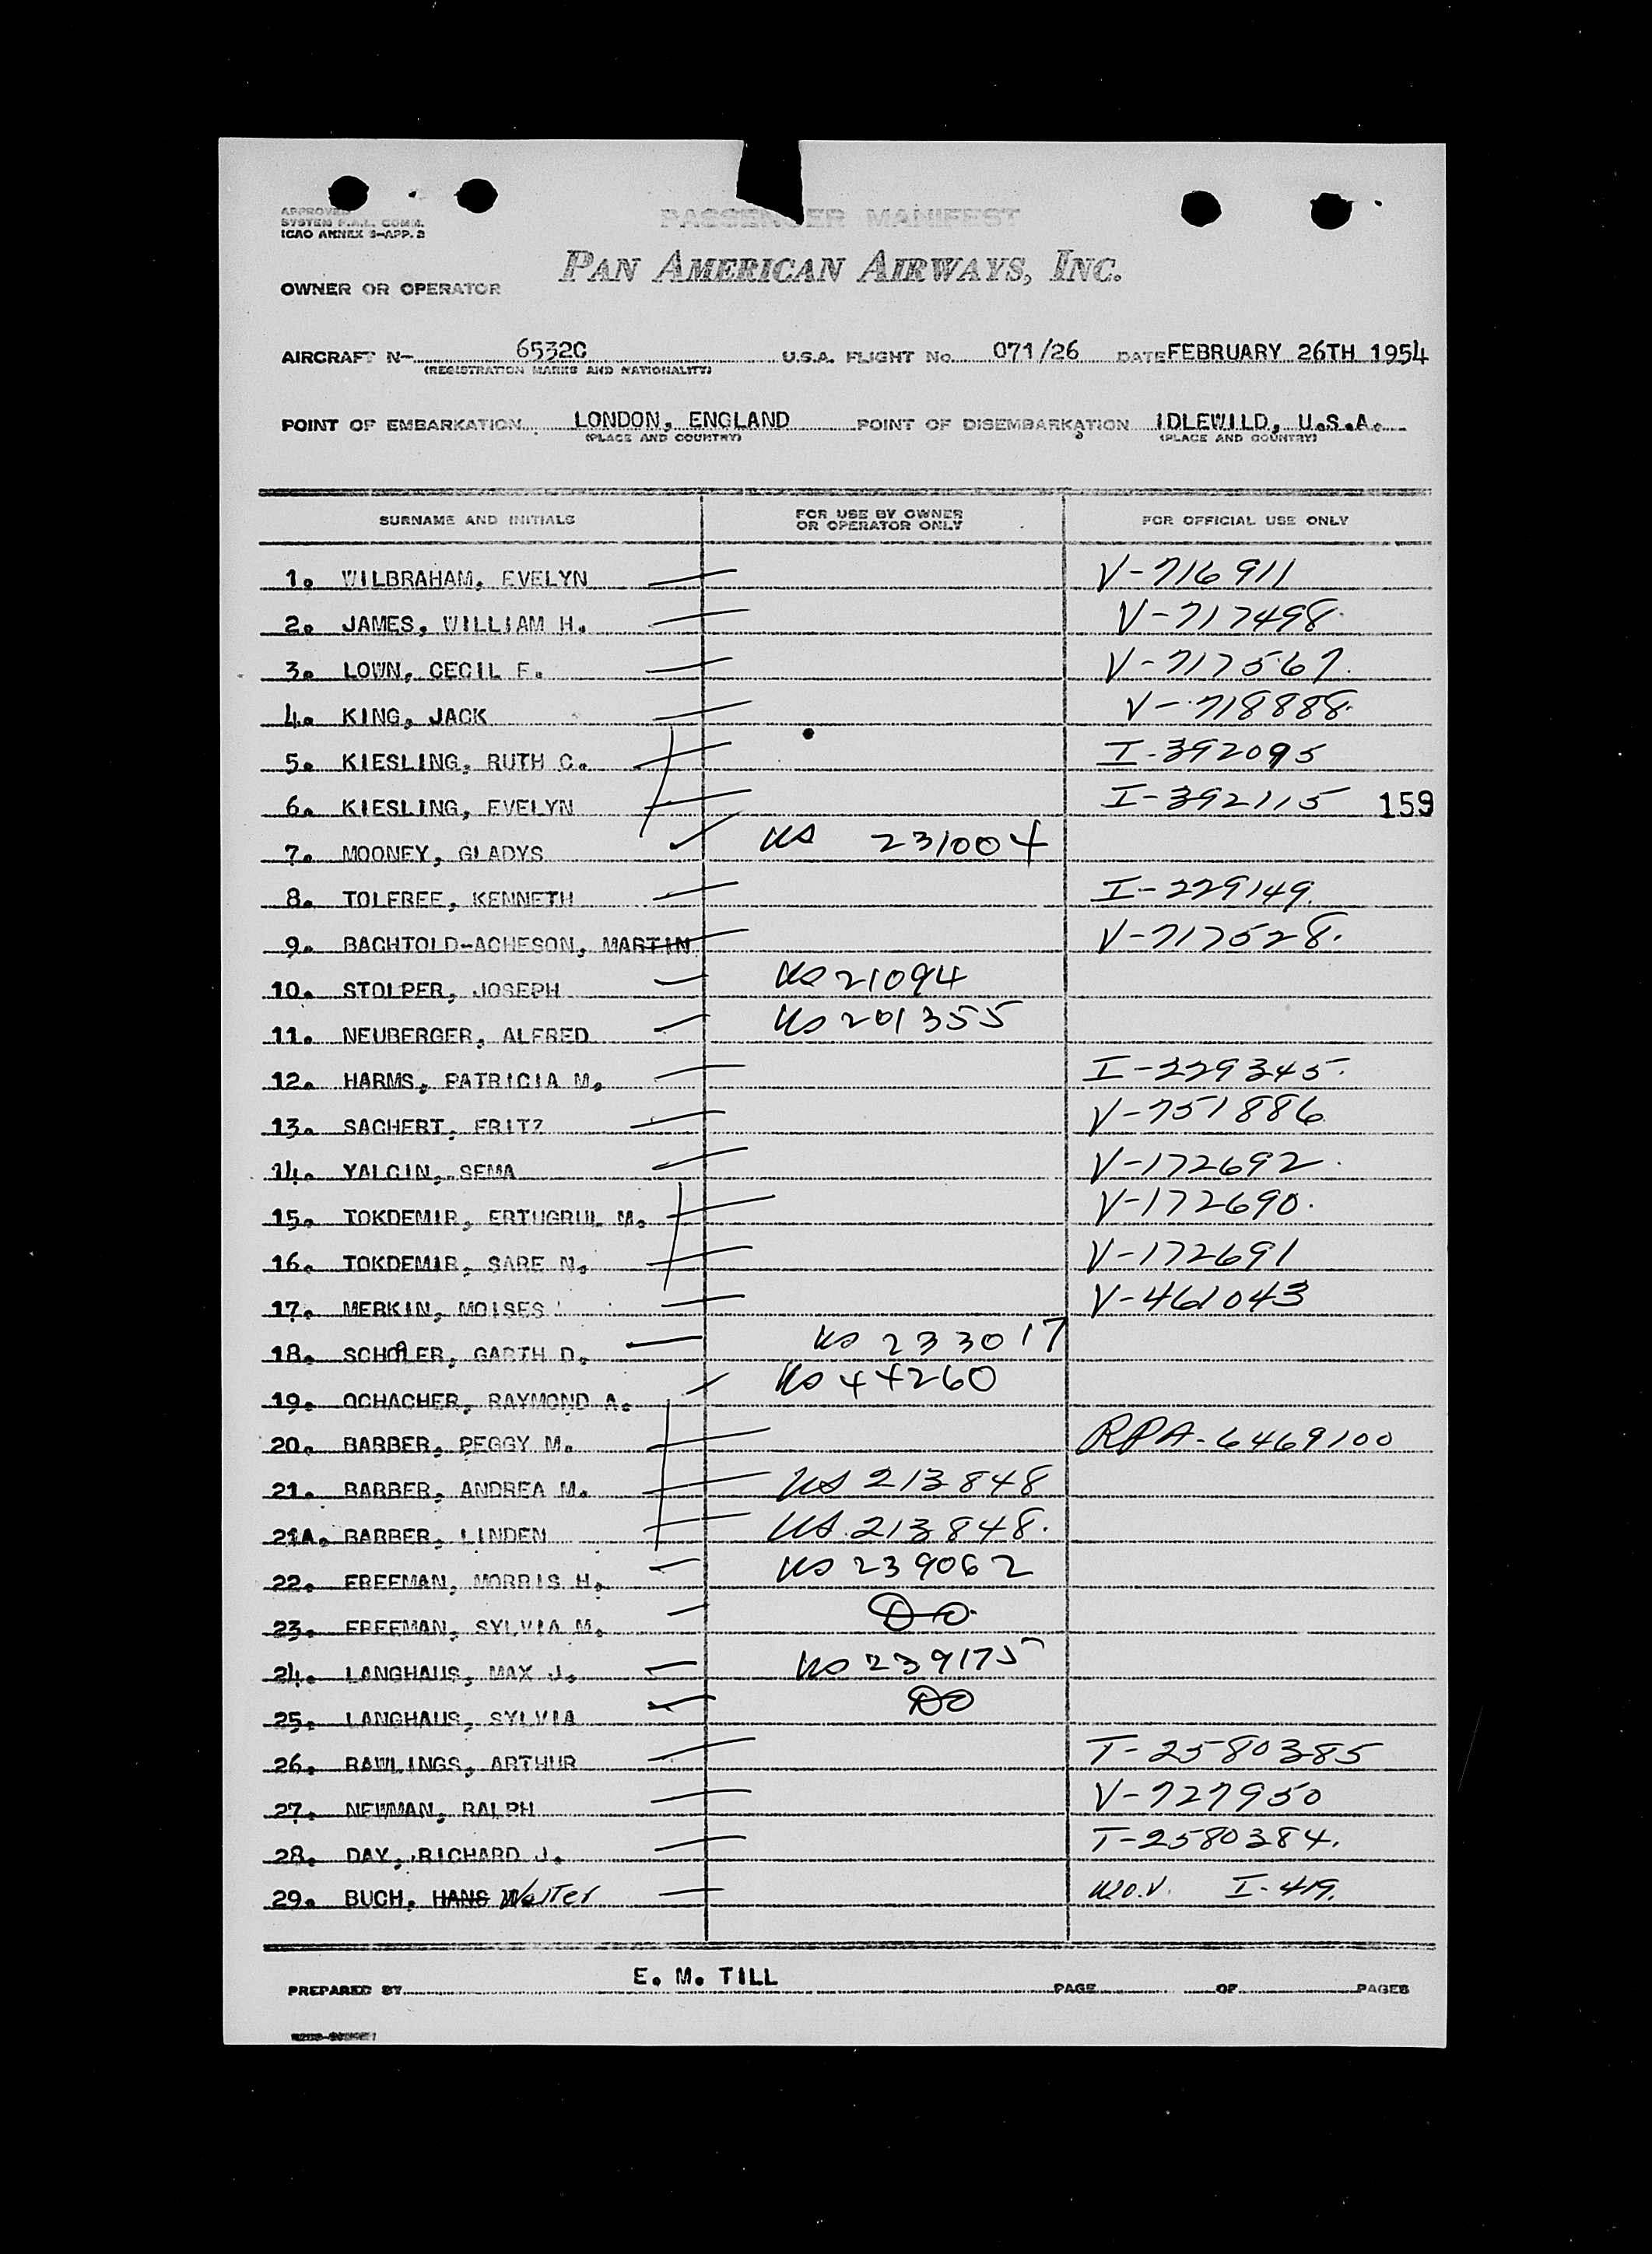 APPROVED
SYSTEM P.A.L. COMM.
ICAO ANNEX 9-APP. B
PASSENGER MANIFEST
PAN AMERICAN AIRWAYS, INC.
OWNER OR OPERATOR
AIRCRAFT N- 6532C U.S.A. FLIGHT No. 071/26 DATE FEBRUARY 26TH 1954
(REGISTRATION MARKS AND NATIONALITY)
POINT OF EMBARKATION LONDON, ENGLAND POINT OF DISEMBARKATION IDLEWILD, U.S.A.
(PLACE AND COUNTRY) (PLACE AND COUNTRY)
SURNAME AND INITIALS FOR USE BY OWNER OR OPERATOR ONLY FOR OFFICIAL USE ONLY
1. WILBRAHAM, EVELYN V-716911
2. JAMES, WILLIAM H. V-717498.
3. LOWN, CECIL F. V-717567.
4. KING, JACK V-718888.
5. KIESLING, RUTH C. I-392095
6. KIESLING, EVELYN I-392115 159
7. MOONEY, GLADYS US 231004
8. TOLFREE, KENNETH I-229149.
9. BACHTOLD-ACHESON, MARTIN V-717528.
10. STOLPER, JOSEPH US 21094
11. NEUBERGER, ALFRED US 201355
12. HARMS, PATRICIA M. I-229345.
13. SACHERT, FRITZ V-751886
14. YALCIN, SEMA V-172692.
15. TOKDEMIR, ERTUGRUL M. V-172690.
16. TOKDEMIR, SARE N. V-172691
17. MERKIN, MOISES V-461043
18. SCHOLER, GARTH D. US 233017
19. OCHACHER, RAYMOND A. US 44260
20. BARBER, PEGGY M. RPA-6469100
21. BARBER, ANDREA M. US 213848
21A. BARBER, LINDEN US. 213848.
22. FREEMAN, MORRIS H. US 239062
23. FREEMAN, SYLVIA M. DO
24. LANGHAUS, MAX J. US 239175
25. LANGHAUS, SYLVIA DO
26. RAWLINGS, ARTHUR T-2580385
27. NEWMAN, RALPH V-727950
28. DAY, RICHARD J. T-2580384.
29. BUCH, HANS Walter I-419.
PREPARED BY E. M. TILL PAGE OF PAGES